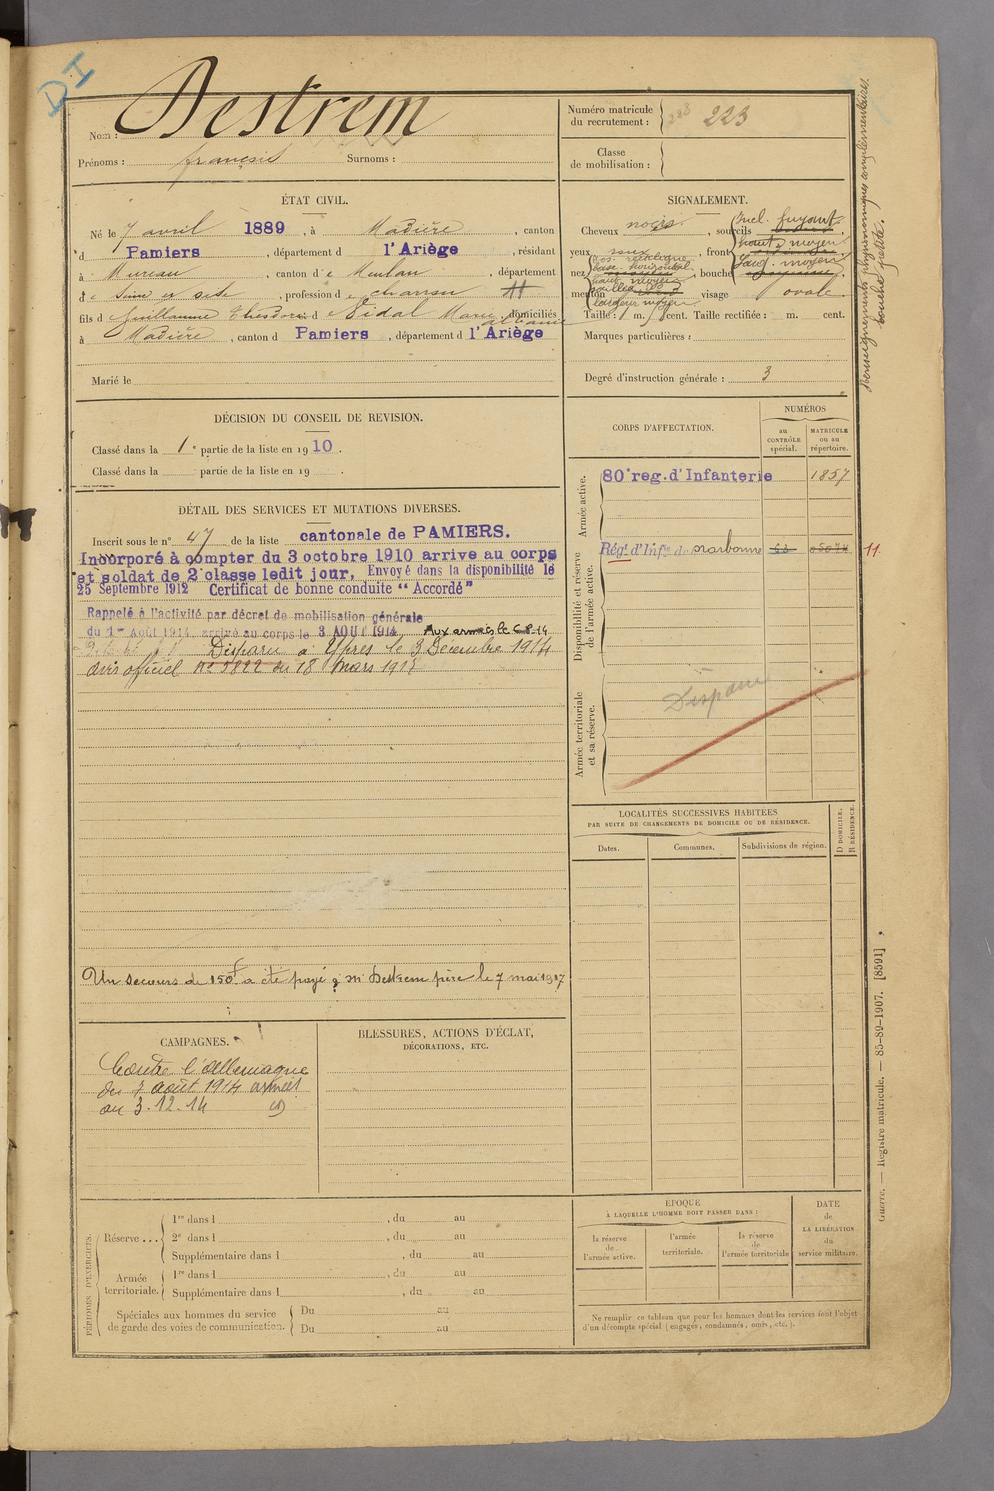 DI
Nom : Destrem
Prénoms : françois Surnoms :
Numéro matricule du recrutement : 223
Classe de mobilisation :
ÉTAT CIVIL.
Né le 7 avril 1889, à Madière, canton
d Pamiers, département d l'Ariège, résidant
à Mureau, canton d e Meulan, département
d e Seine et Oise, profession d e charron
fils d e Guillaume Theodore et d e Vidal Marie, domiciliés
à Madière, canton d Pamiers, département d l'Ariège
Marié le
SIGNALEMENT.
Cheveux noirs, sourcils
Incl. fuyant
yeux, front
haut. moyen
larg. moyen
nez, bouche
dos. rectiligne
base. horizontal
haut. moyen
menton visage ovale
largeur moyen
Taille : 1 m. cent. Taille rectifiée : m. cent.
Marques particulières :
Degré d'instruction générale : 3
Renseignements physionomiques complémentaires.
bouche petite.
DÉCISION DU CONSEIL DE REVISION.
Classé dans la 1e partie de la liste en 1910.
Classé dans la partie de la liste en 19 .
DÉTAIL DES SERVICES ET MUTATIONS DIVERSES.
Inscrit sous le n° 47 de la liste cantonale de PAMIERS.
Incorporé à compter du 3 octobre 1910 arrive au corps
et soldat de 2e classe ledit jour, Envoyé dans la disponibilité le
25 Septembre 1912 Certificat de bonne conduite "Accordé"
Rappelé à l'activité par décret de mobilisation générale
du 1er Août 1914, arrivé au corps le 3 AOUT 1914 Aux armées le
Disparu à Ypres le 3 Décembre 1914
avis officiel n° 5822 du 18 Mars 1915
Un secours de 150f a été payé à Mr Destrem père le 7 mai 1917
CORPS D'AFFECTATION.
NUMÉROS
au CONTRÔLE spécial.
MATRICULE ou au répertoire.
Armée active.
80e reg. d'Infanterie 1857
Disponibilité et réserve de l'armée active.
Régt d'Infie de Narbonne 11
Armée territoriale et sa réserve.
Disparu
LOCALITÉS SUCCESSIVES HABITÉES
PAR SUITE DE CHANGEMENTS DE DOMICILE OU DE RÉSIDENCE.
D DOMICILE.
R RÉSIDENCE.
Dates. Communes. Subdivisions de région.
CAMPAGNES.
Contre l'Allemagne
du 7 août 1914 armées
au 3.12.14
BLESSURES, ACTIONS D'ÉCLAT,
DÉCORATIONS, ETC.
PÉRIODES D'EXERCICES.
Réserve...
1re dans l , du au
2e dans l , du au
Supplémentaire dans l , du au
Armée territoriale.
1re dans l , du au
Supplémentaire dans l , du au
Spéciales aux hommes du service
de garde des voies de communication.
Du au
Du au
EPOQUE
À LAQUELLE L'HOMME DOIT PASSER DANS :
la réserve de l'armée active.
l'armée territoriale.
la réserve de l'armée territoriale
DATE de LA LIBÉRATION du service militaire.
Ne remplir ce tableau que pour les hommes dont les services font l'objet
d'un décompte spécial (engagés, condamnés, omis, etc.).
Guerre. — Registre matricule. — 85-89-1907. [8591]